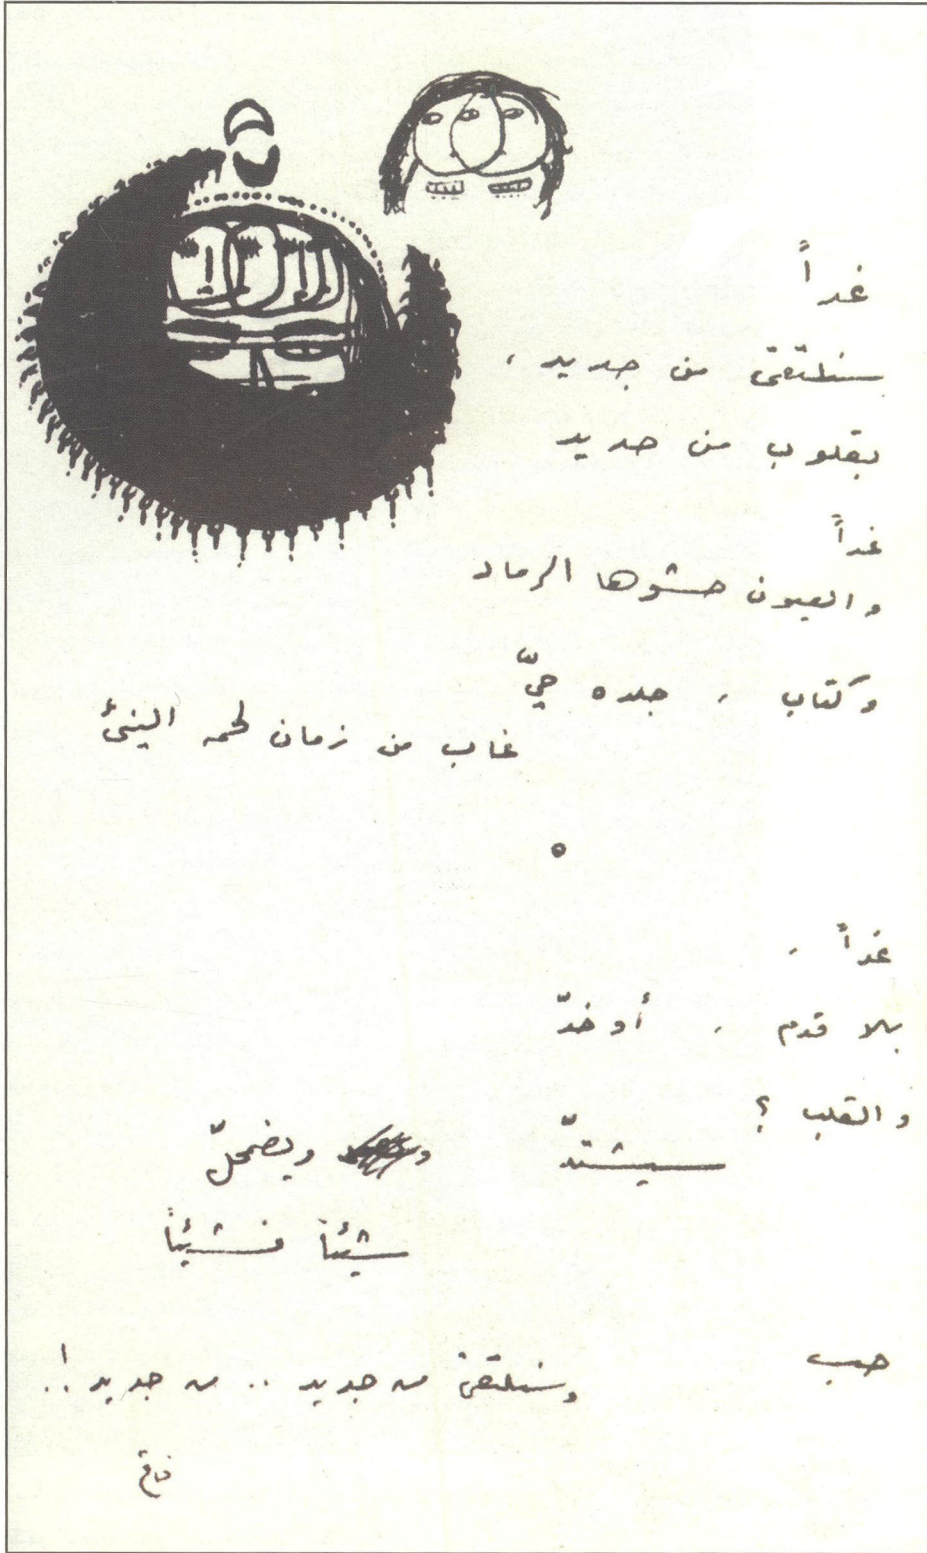 غداً
سنلتقي من جديد ،
بقلوب من حديد
غداً
والعيون حشوها الرماد
وكتاب ، جلده حيّ
غاب من زمان لحمه النيئ
غداً ،
بلا قدم ، أو خدّ
والقلب ؟
سيشتدّ ويضمحلّ
شيئاً فشيئاً
حب وسنلتقي من جديد .. من جديد !..